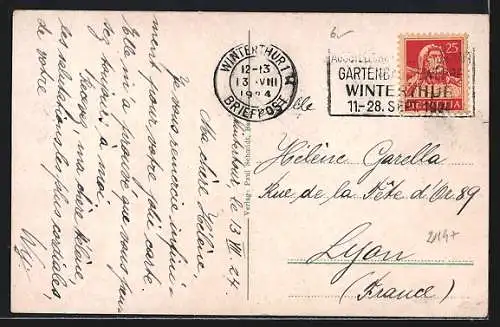 WINTERTHUR 1
12-13
13. VIII
1924
BRIEFPOST
AUSSTELLUNG
GARTENBAU
WINTERTHUR
11.-28. SEPT. 1924
25
HELVETIA
Winterthour, le 13 VIII. 24.
Ma chère Hélène,
Je vous remercie infini-
ment pour votre jolie carte
Elle m'a prouvé que vous pen-
sez toujours à moi.
Recevez, ma chère Hélène,
les salutations les plus cordiales,
de votre
Verlag: Paul Schmidt,
Mlle
Hélène Garella
Rue de la Tête d'Or 89
Lyon
(France)